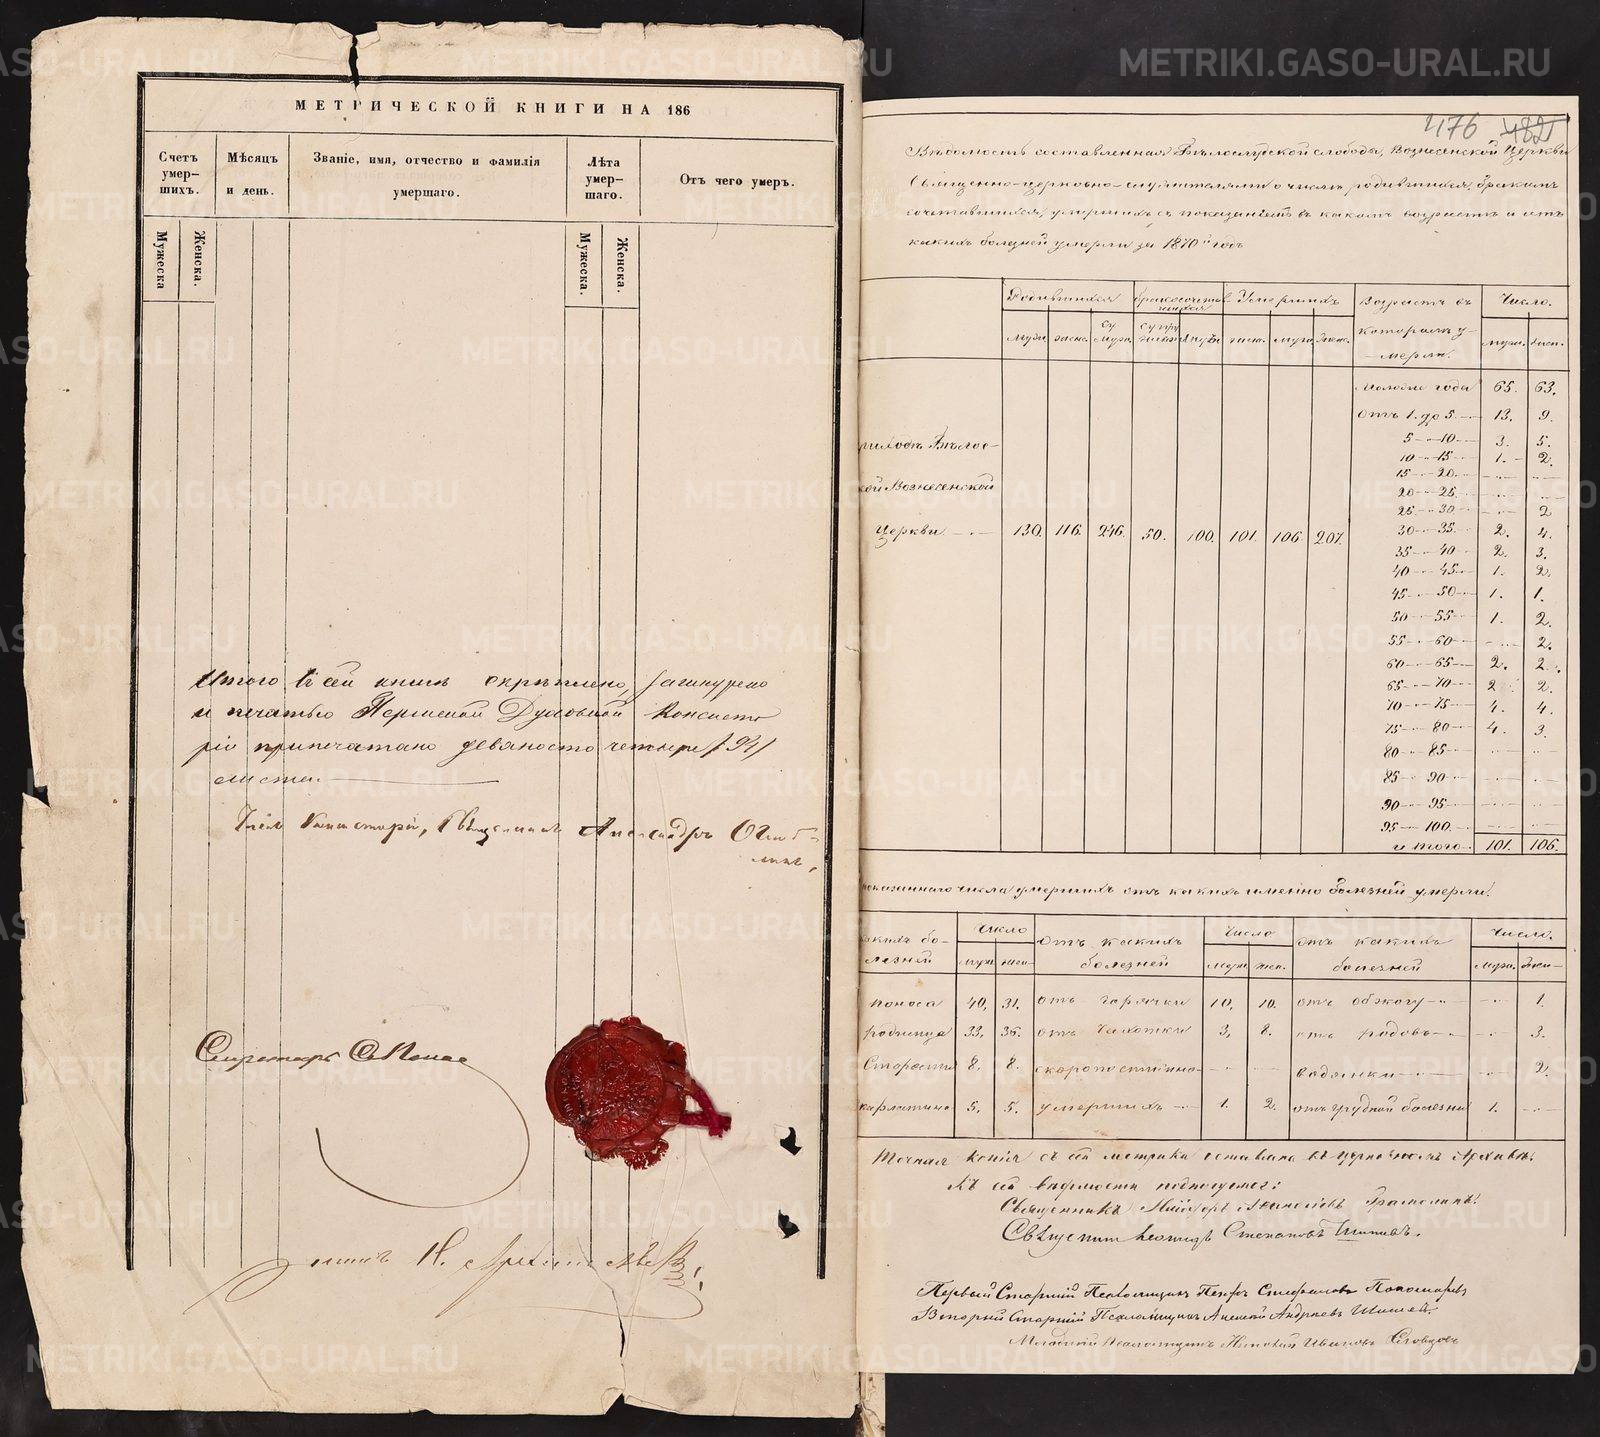 МЕТРИЧЕСКОЙ КНИГИ НА 186
Счетъ умер-шихъ.
Мѣсяцъ и день.
Званіе, имя, отчество и фамилія умершаго.
Лѣта умер-шаго.
Отъ чего умеръ.
Мужеска
Женска.
Мужеска.
Женска.
Итого въ сей книгѣ скрѣплено, зашнуровано
и печатью Пермской Духовной Консисто
ріи припечатано девяносто четыре /94/
листа.
Членъ Консисторіи, Священникъ Александръ
Секретарь
476 482
Вѣдомость составленная Бѣлослудской слободы, Вознесенской Церкви
Священно-церковно-служителями о числѣ родившихся, бракомъ
сочетавшихся, умершихъ съ показаніемъ въ какомъ возрастѣ и отъ
какихъ болѣзней умерли за 1870й годъ
Родившихся
бракосочетав
шихся
Умершихъ
Возрастъ въ
которомъ у-
мерли.
Число.
муж. женс.
муж. женс.
муж. женс.
Молодые годы 65. 63.
Отъ 1. до 5. 13. 9.
5 10 3. 5.
10 15 1. 2.
15 20
20 25
25 30 2
30 35 2. 4.
35 40 2. 3.
40 45 1. 2.
45 50 1. 1.
50 55 1. 2.
55 60 2.
60 65 2. 2.
65 70 2 2.
70 75 4. 4.
75 80 4. 3.
80 85
85 90
90 95
95 100.
итого 101. 106.
кой Вознесенской
Церкви 130. 116. 246. 50. 100. 101. 106. 207.
показаннаго числа умершихъ отъ какихъ именно болезней умерли.
какихъ бо-
лезней
Число
муж. жен.
отъ какихъ
болезней
Число
муж. жен.
отъ какихъ
болезней
Число.
муж. жен.
поноса 40. 31. отъ горячки 10. 10. отъ обжогу 1.
родимца 33. 35. отъ чахотки 3. 8. отъ родовъ 3.
Старости 8. 8. скоропостижно водянки 2.
скарлатина 5. 5. умершихъ 1. 2. отъ грудной болезни 1.
Точная копія съ сей метрики оставлена въ церковномъ Архивѣ.
Къ сей вѣдомости подписуемся:
Священникъ
Священникъ Леонидъ Степановъ Шишевъ.
Первый Старшій Псаломщикъ Петръ Стефановъ Пономаревъ
Вторый Старшій Псаломщикъ Алексей Андреевъ Шишевъ.
Младшій Псаломщикъ Ивановъ Словцовъ
METRIKI.GASO-URAL.RU